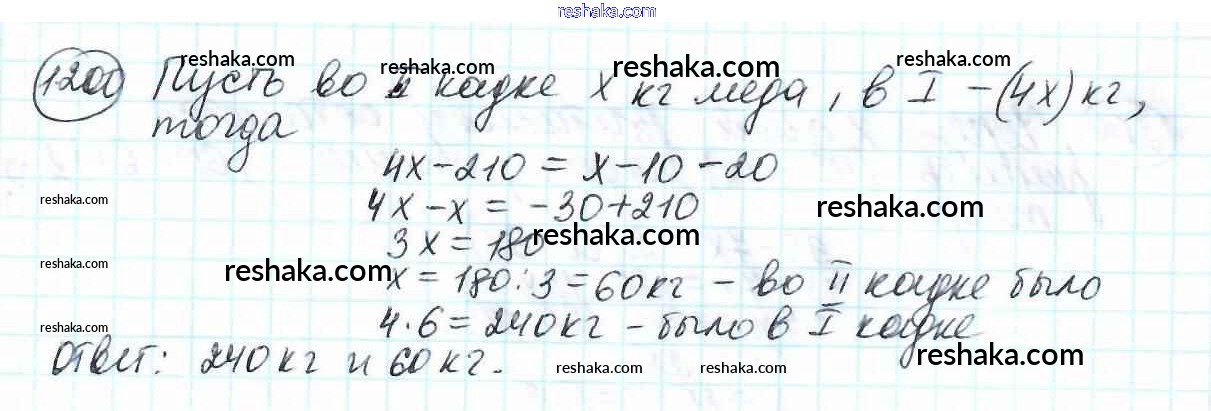 reshaka.com
1200 Пусть во II кадке x кг меда, в I – (4x) кг,
тогда
4x – 210 = x – 10 – 20
4x – x = –30 + 210
3x = 180
x = 180 : 3 = 60 кг – во II кадке было
4 · 6 = 240 кг – было в I кадке
Ответ: 240 кг и 60 кг.
reshaka.com
reshaka.com
reshaka.com
reshaka.com
reshaka.com
reshaka.com
reshaka.com
reshaka.com
reshaka.com
reshaka.com
reshaka.com
reshaka.com
reshaka.com